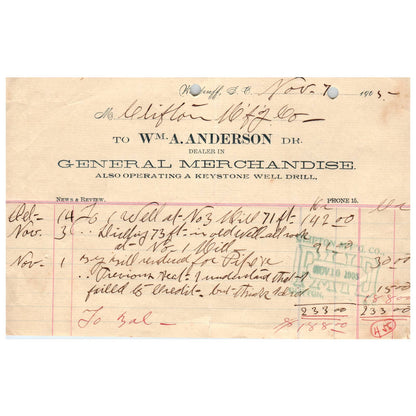 Woodruff, S. C. Nov. 7 1905-
M Clifton M'f'g Co-
TO WM. A. ANDERSON DR.
DEALER IN
GENERAL MERCHANDISE.
ALSO OPERATING A KEYSTONE WELL DRILL.
NEWS & REVIEW. PHONE 15.
Oct- 14 To 1 Well at No 3 Mill 71 ft- 142.00
Nov. 3 " Drilling 73 ft- in old Well all rock
at- No 1 Mill
Nov- 1 By bill rendered for Pipe 30.00
" Previous that I understand that I
failed to credit- but
15.00
188.00
233.00 233.00
To Bal- $188.00
NOV 10 1905